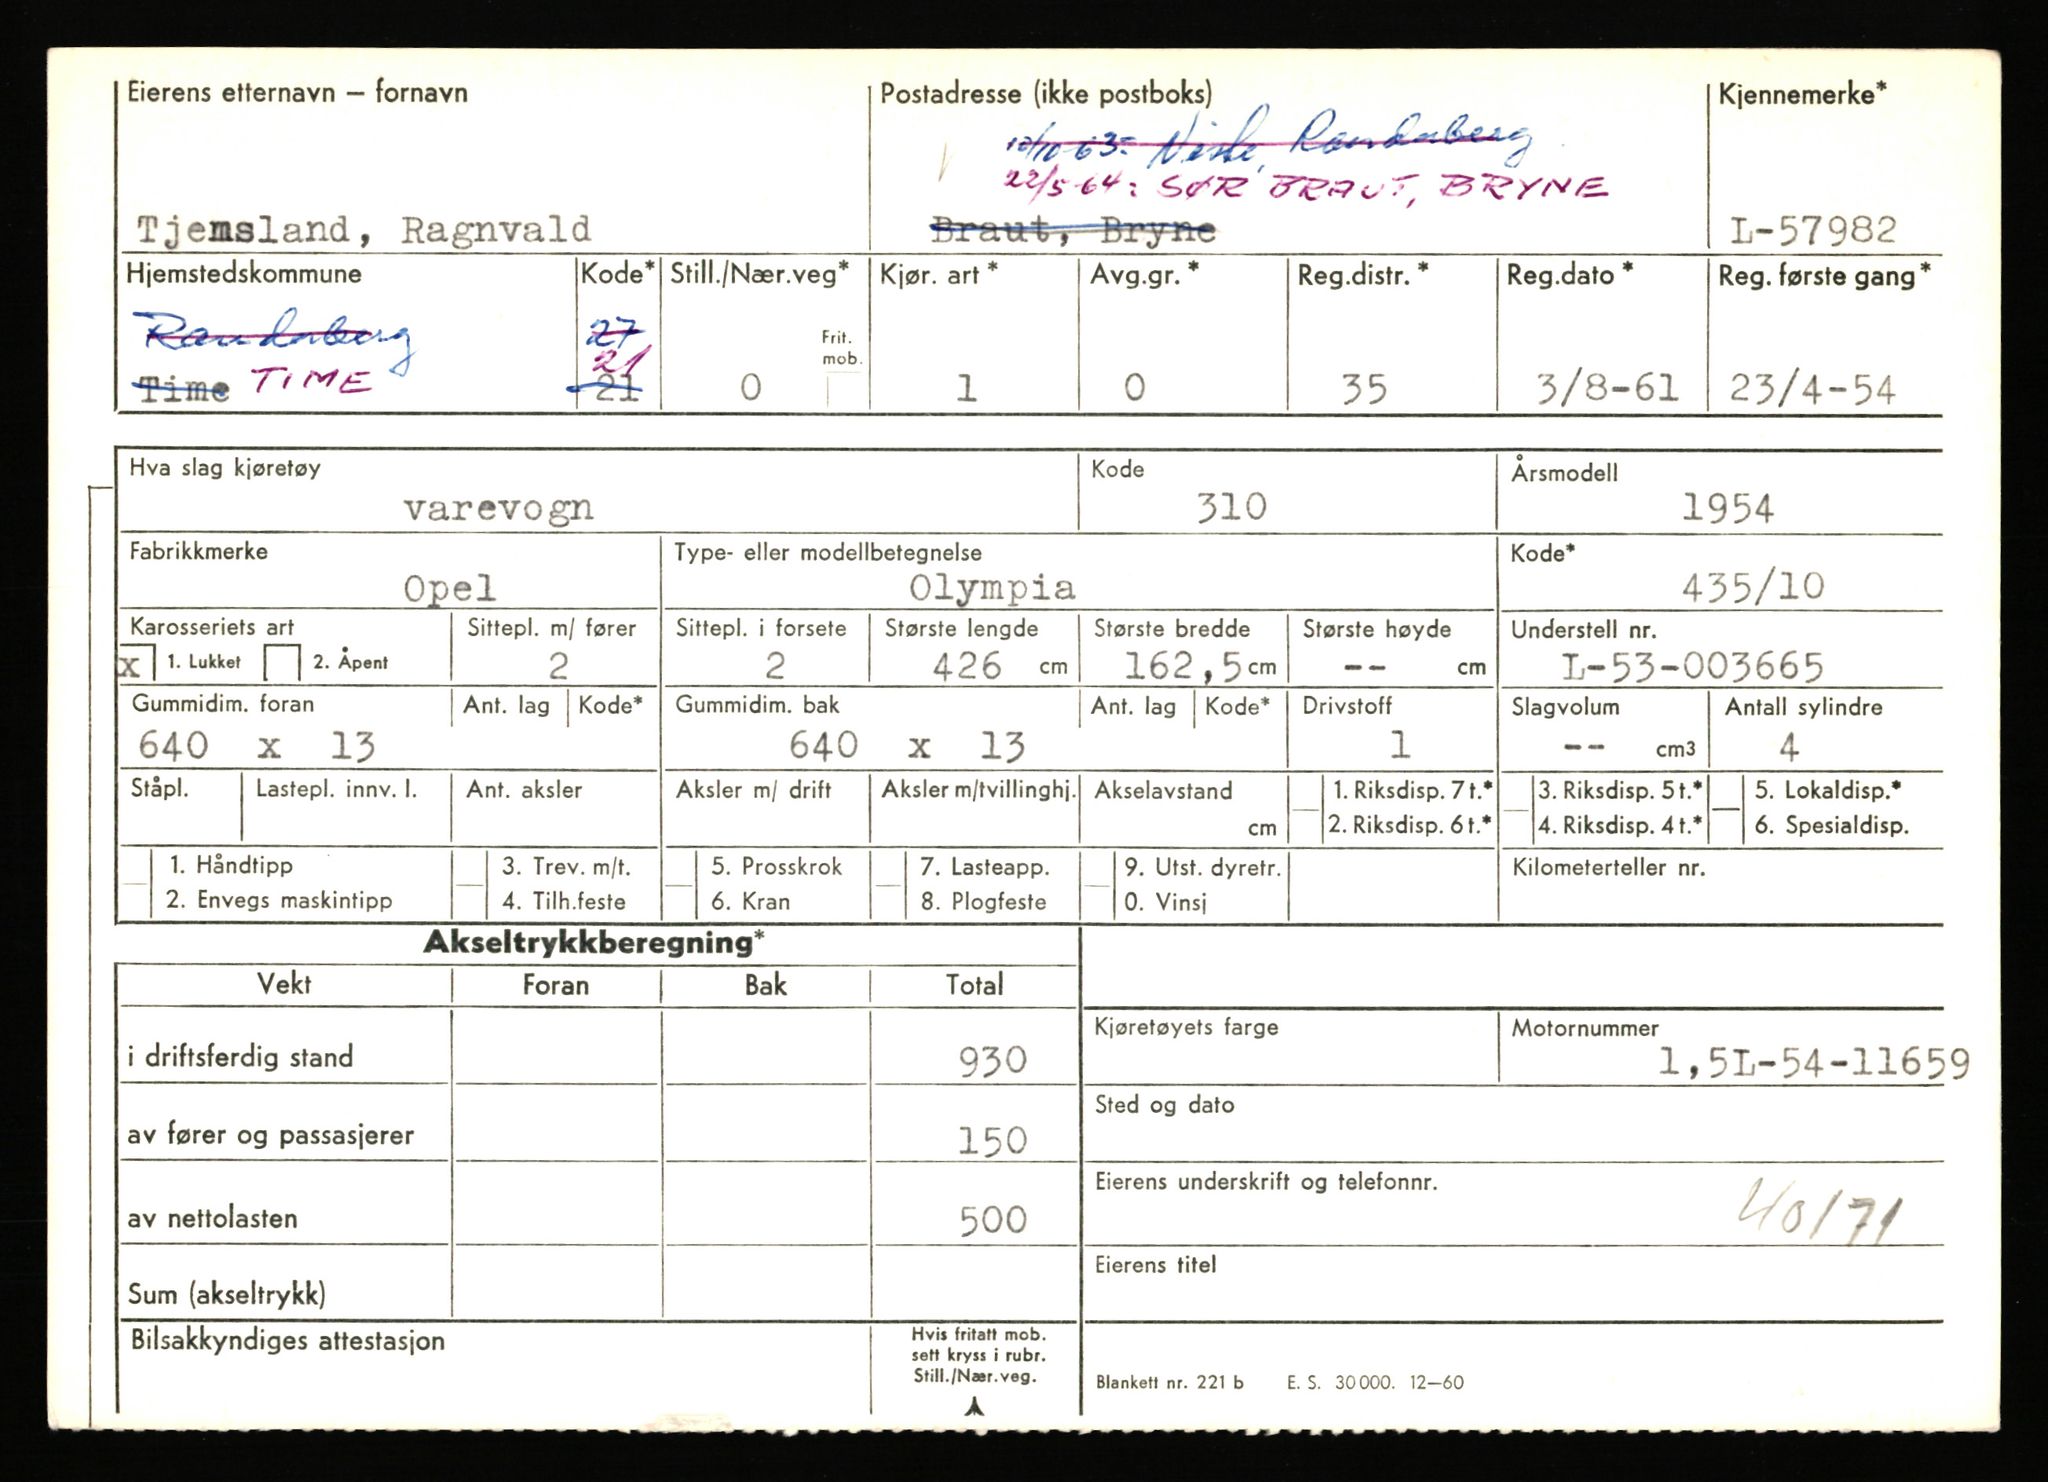 Eierens etternavn – fornavn Postadresse (ikke postboks) Kjennemerke*
10/10-63: Randaberg
22/5-64: SØR BRAUT, BRYNE
Tjemsland, Ragnvald Braut, Bryne L-57982
Hjemstedskommune Kode* Still./Nær.veg* Kjør. art * Avg.gr. * Reg.distr. * Reg.dato * Reg. første gang *
Randaberg 27 Frit.
21 mob.
Time TIME 21 0 1 0 35 3/8-61 23/4-54
Hva slag kjøretøy Kode Årsmodell
varevogn 310 1954
Fabrikkmerke Type- eller modellbetegnelse Kode*
Opel Olympia 435/10
Karosseriets art Sittepl. m/ fører Sittepl. i forsete Største lengde Største bredde Største høyde Understell nr.
x 1. Lukket 2. Åpent 2 2 426 cm 162,5 cm -- cm L-53-003665
Gummidim. foran Ant. lag Kode* Gummidim. bak Ant. lag Kode* Drivstoff Slagvolum Antall sylindre
640 x 13 640 x 13 1 -- cm3 4
Ståpl. Lastepl. innv. l. Ant. aksler Aksler m/ drift Aksler m/tvillinghj. Akselavstand 1. Riksdisp. 7 t.* 3. Riksdisp. 5 t.* 5. Lokaldisp.*
cm 2. Riksdisp. 6 t.* 4. Riksdisp. 4 t.* 6. Spesialdisp.
1. Håndtipp 3. Trev. m/t. 5. Prosskrok 7. Lasteapp. 9. Utst. dyretr. Kilometerteller nr.
2. Envegs maskintipp 4. Tilh.feste 6. Kran 8. Plogfeste 0. Vinsj
Akseltrykkberegning*
Vekt Foran Bak Total
Kjøretøyets farge Motornummer
i driftsferdig stand 930 1,5L-54-11659
Sted og dato
av fører og passasjerer 150
Eierens underskrift og telefonnr.
av nettolasten 500 40/71
Eierens titel
Sum (akseltrykk)
Bilsakkyndiges attestasjon Hvis fritatt mob.
sett kryss i rubr.
Still./Nær.veg.
Blankett nr. 221 b E. S. 30 000. 12–60